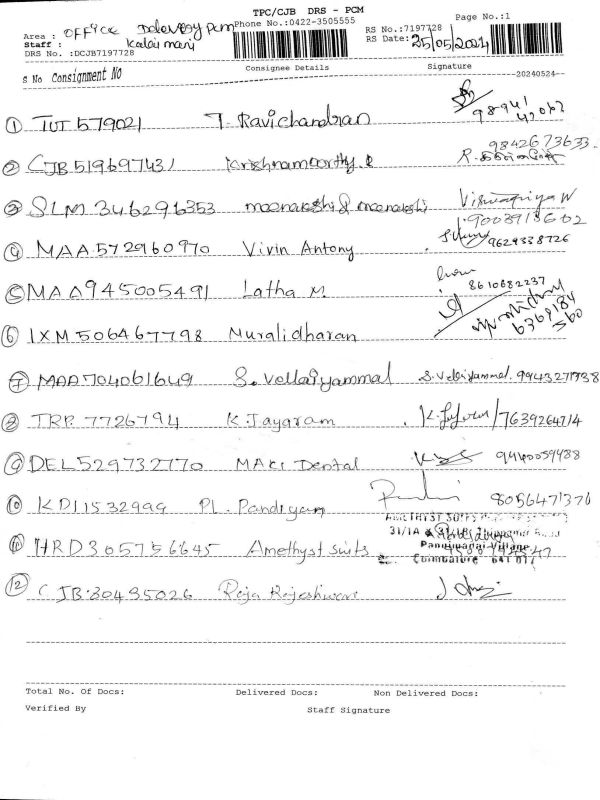 TPC/CJB DRS - PCM
Page No.:1
Area : OFFICE Delevery pcm Phone No.:0422-3505555
RS No.:7197728
Staff : Kalai mani
RS Date: 25/05/2024
DRS No. :DCJB7197728
Consignee Details
Signature
S No Consignment No
20240524
1 TUT 579021 T. Ravichandran 98941
2 CJB519697431 Krishnamoorthy. 9842673633
3 SLM 346296353 meenakshi & meenakshi Viswapriya W
4 MAA572960970 Vivin Antony 9629338726
5 MAA945005491 Latha M. 8610682237
6 IXM506467798 Muralidharan 6369184 360
7 MAA704061649 S. Vellaiyammal S. Vellaiyammal. 9943271938
8 TRP. 7726794 K. Jayaram 7639264714
9 DEL529732770 MAKI Dental 9940059488
10 KDI1532999 PL. Pandiyan 8056471376
AMETHYST SUITS
31/1A
11 HRD305756645 Amethyst suits
Coimbatore 641 017
12 CJB.80495026 Raja Rajeshwari
Total No. Of Docs: Delivered Docs: Non Delivered Docs:
Verified By Staff Signature